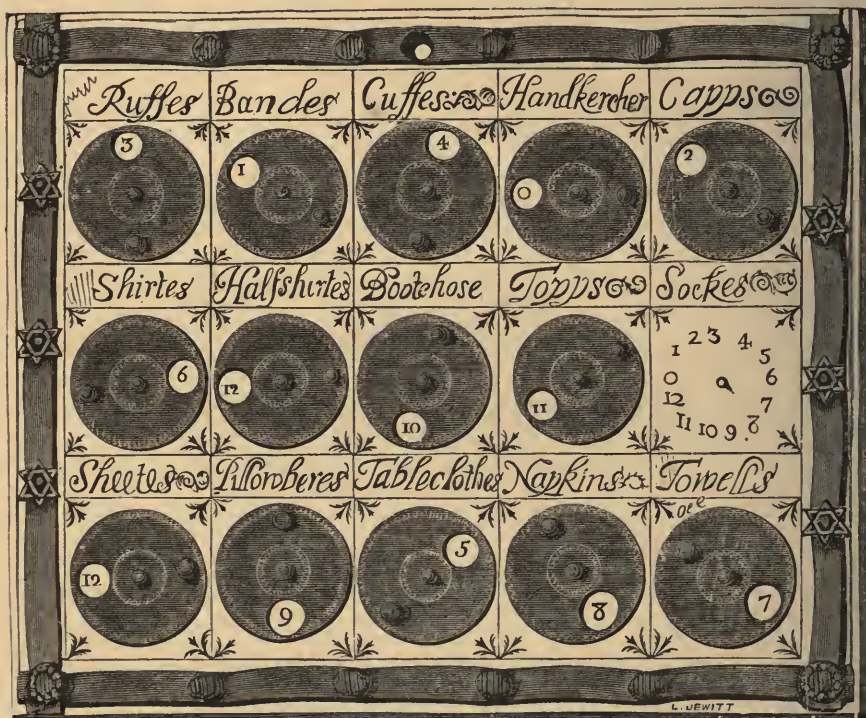 Ruffes Bandes Cuffes Handkercher Capps
3 1 4 0 2
Shirtes Halfshirtes Bootehose Topps Sockes
6 12 10 11 0 1 2 3 4 5 6 7 8 9 10 11 12
Sheetes Pillowberes Tableclothes Napkins Towells
12 9 5 8 7
L. JEWITT